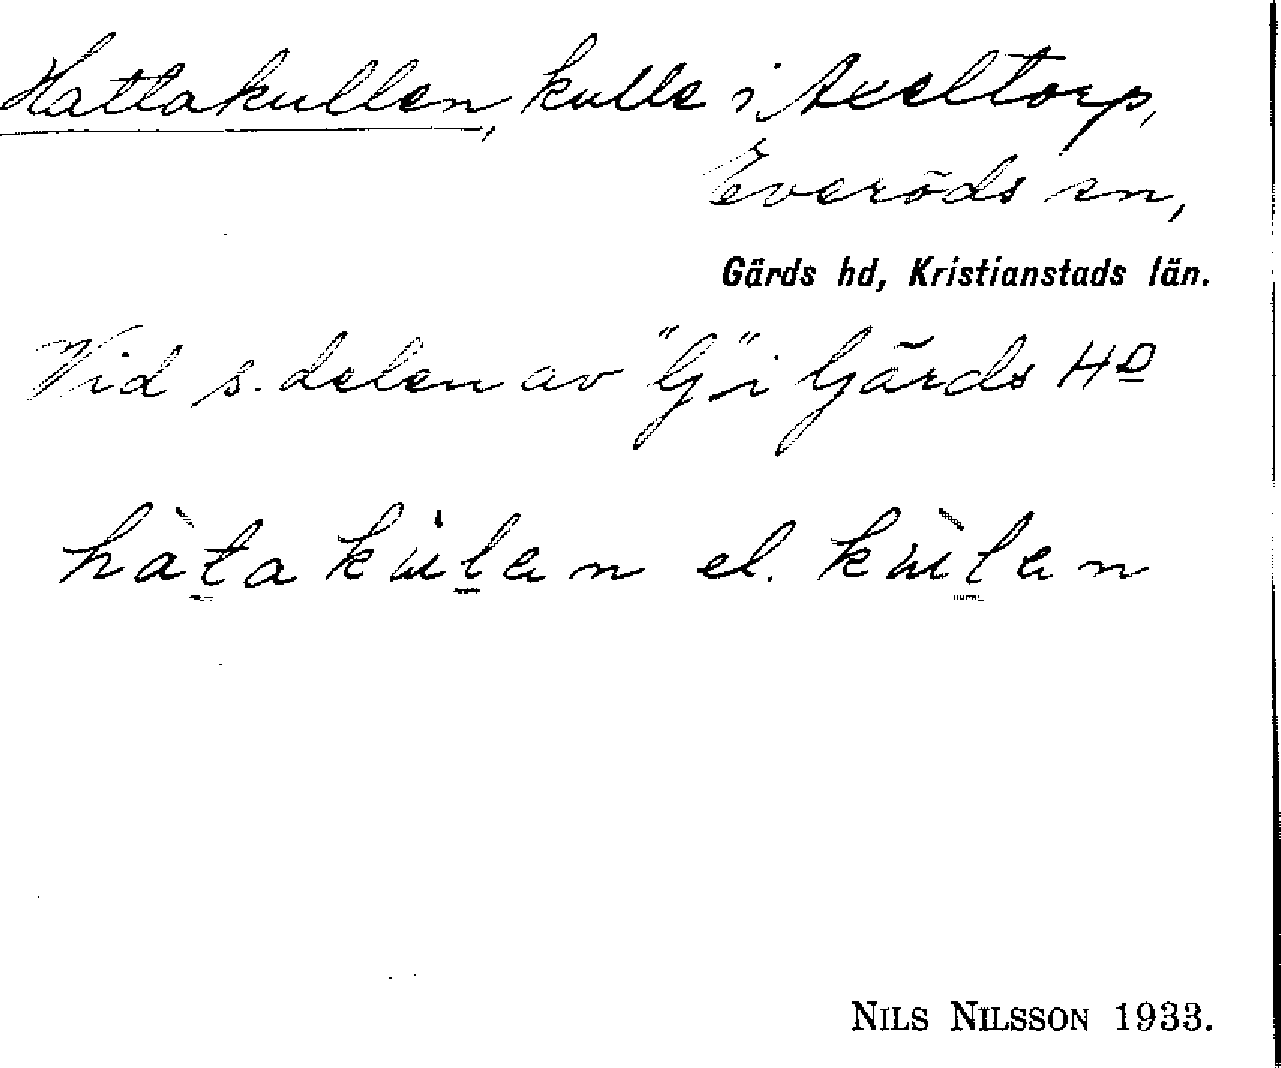 Hattakullen, kulle i Axeltorp,
Everöds sn,
Gärds hd, Kristianstads län.
Vid s. delen av "G" i Gärds HD
hàta kulan el. kùlan
NILS NILSSON 1933.